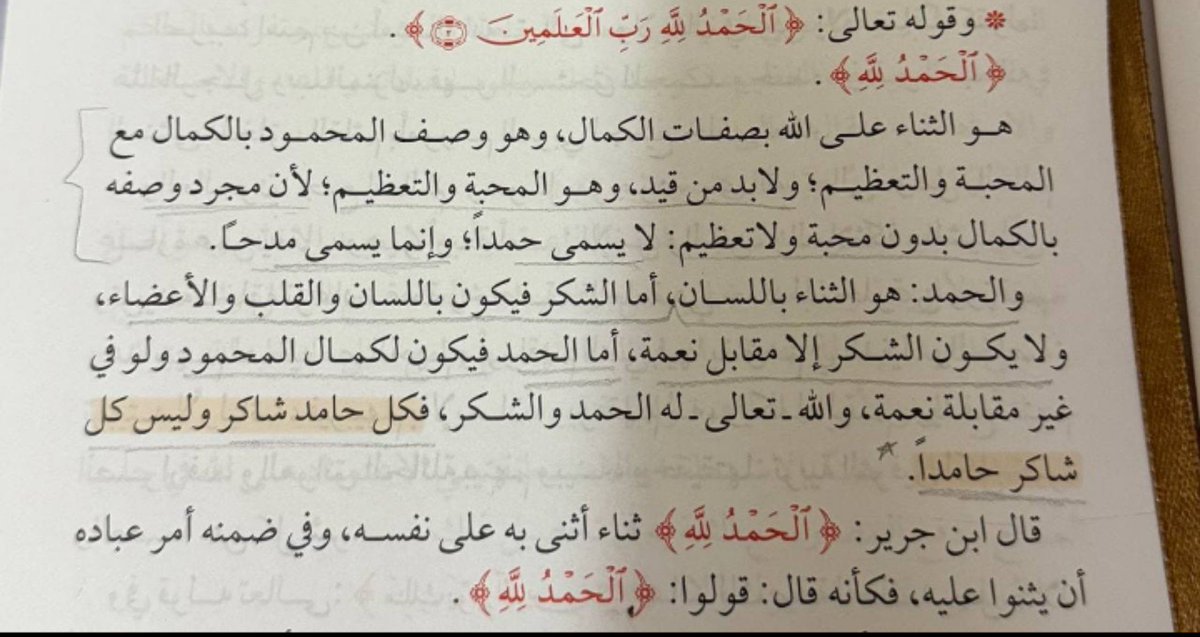 * وقوله تعالى: ﴿ ٱلْحَمْدُ لِلَّهِ رَبِّ ٱلْعَـٰلَمِينَ ۝٢ ﴾.
﴿ ٱلْحَمْدُ لِلَّهِ ﴾.
هـو الثناء علـى الله بصفات الكمال، وهو وصـف المحمـود بالكمال مع
المحبـة والتعظيـم؛ ولابد من قيد، وهـو المحبة والتعظيـم؛ لأن مجرد وصفه
بالكمال بدون محبة ولاتعظيم: لا يسمى حمداً؛ وإنما يسمى مدحـاً.
والحمد: هو الثناء باللسـان، أما الشكر فيكون باللسان والقلب والأعضاء،
ولا يكـون الشـكر إلا مقابل نعمة، أما الحمد فيكون لكمـال المحمود ولو في
غير مقابلة نعمة، والله ـ تعالى ـ له الحمد والشـكر، فكل حامد شاكر وليس كل
شاكر حامداً.
قال ابن جرير: ﴿ ٱلْحَمْدُ لِلَّهِ ﴾ ثناء أثنى به على نفسـه، وفي ضمنه أمر عباده
أن يثنوا عليه، فكأنه قال: قولوا: ﴿ ٱلْحَمْدُ لِلَّهِ ﴾.